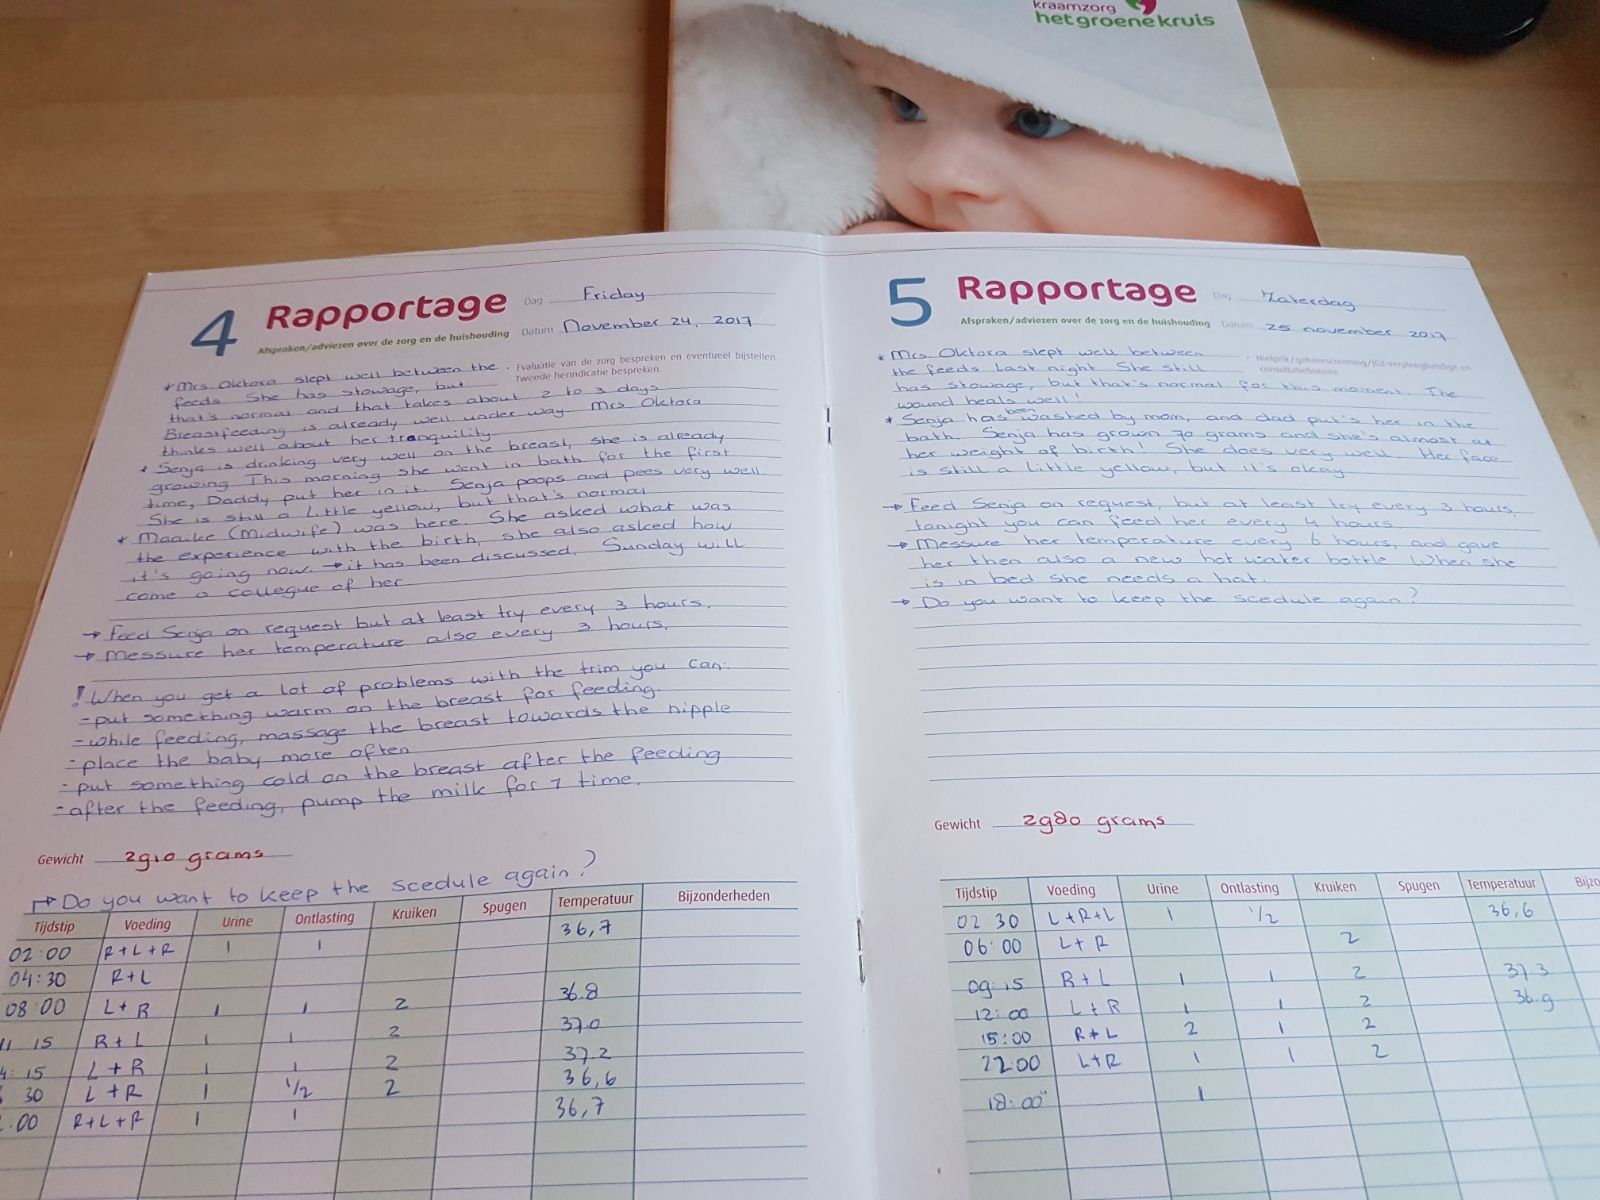 kraamzorg
hetgroenekruis
4
Rapportage
Dag Friday
Afspraken/adviezen over de zorg en de huishouding
Datum November 24, 2017
Evaluatie van de zorg bespreken en eventueel bijstellen.
Tweede herindicatie bespreken.
* Mrs Oktora slept well between the
feeds. She has stowage, but
that's normal and that takes about 2 to 3 days
Breastfeeding is already well under way. Mrs Oktora
thinks well about her tranquility
* Senja is drinking very well on the breast, she is already
growing This morning she went in bath for the first
time, Daddy put her in it. Senja poops and pees very well.
She is still a little yellow, but that's normal
* Maaike (Midwife) was here. She asked what was
the experience with the birth, she also asked how
it's going now. → it has been discussed. Sunday will
come a collegue of her
→ Feed Senja on request but at least try every 3 hours.
→ Messure her temperature also every 3 hours.
! When you get a lot of problems with the trim you can:
- put something warm on the breast for feeding.
- while feeding, massage the breast towards the nipple
- place the baby more often
- put something cold on the breast after the feeding
- after the feeding, pump the milk for 1 time.
Gewicht 2910 grams
→ Do you want to keep the scedule again?
Tijdstip Voeding Urine Ontlasting Kruiken Spugen Temperatuur Bijzonderheden
02:00 R+L+R 1 1 36,7
04:30 R+L
08:00 L+R 1 1 2 36.8
11 15 R+L 1 1 2 37.0
4:15 L+R 1 1 2 37.2
30 L+R 1 1/2 2 36,6
:00 R+L+R 1 1 36,7
5
Rapportage
Dag Zaterdag
Afspraken/adviezen over de zorg en de huishouding
Datum 25 november 2017
Hielprik/gehoorscreening/JGZ-verpleegkundige en
consultatiebureau.
* Mrs Oktora slept well between
the feeds last night. She still
has stowage, but that's normal for this moment. The
wound heals well!
* Senja has been washed by mom, and dad put's her in the
bath. Senja has grown 70 grams and she's almost at
her weight of birth! She does very well. Her face
is still a little yellow, but it's okay
→ Feed Senja on request, but at least try every 3 hours,
tonight you can feed her every 4 hours.
→ Messure her temperature every 6 hours, and gave
her then also a new hot water bottle When she
is in bed she needs a hat.
→ Do you want to keep the scedule again?
Gewicht 2980 grams
Tijdstip Voeding Urine Ontlasting Kruiken Spugen Temperatuur Bijzo
02 30 L+R+L 1 1/2 36,6
06:00 L+R 2
09:15 R+L 1 1 2 37.3
12:00 L+R 1 1 2 36.9
15:00 R+L 2 1 2
22:00 L+R 1 1 2
18:00 1